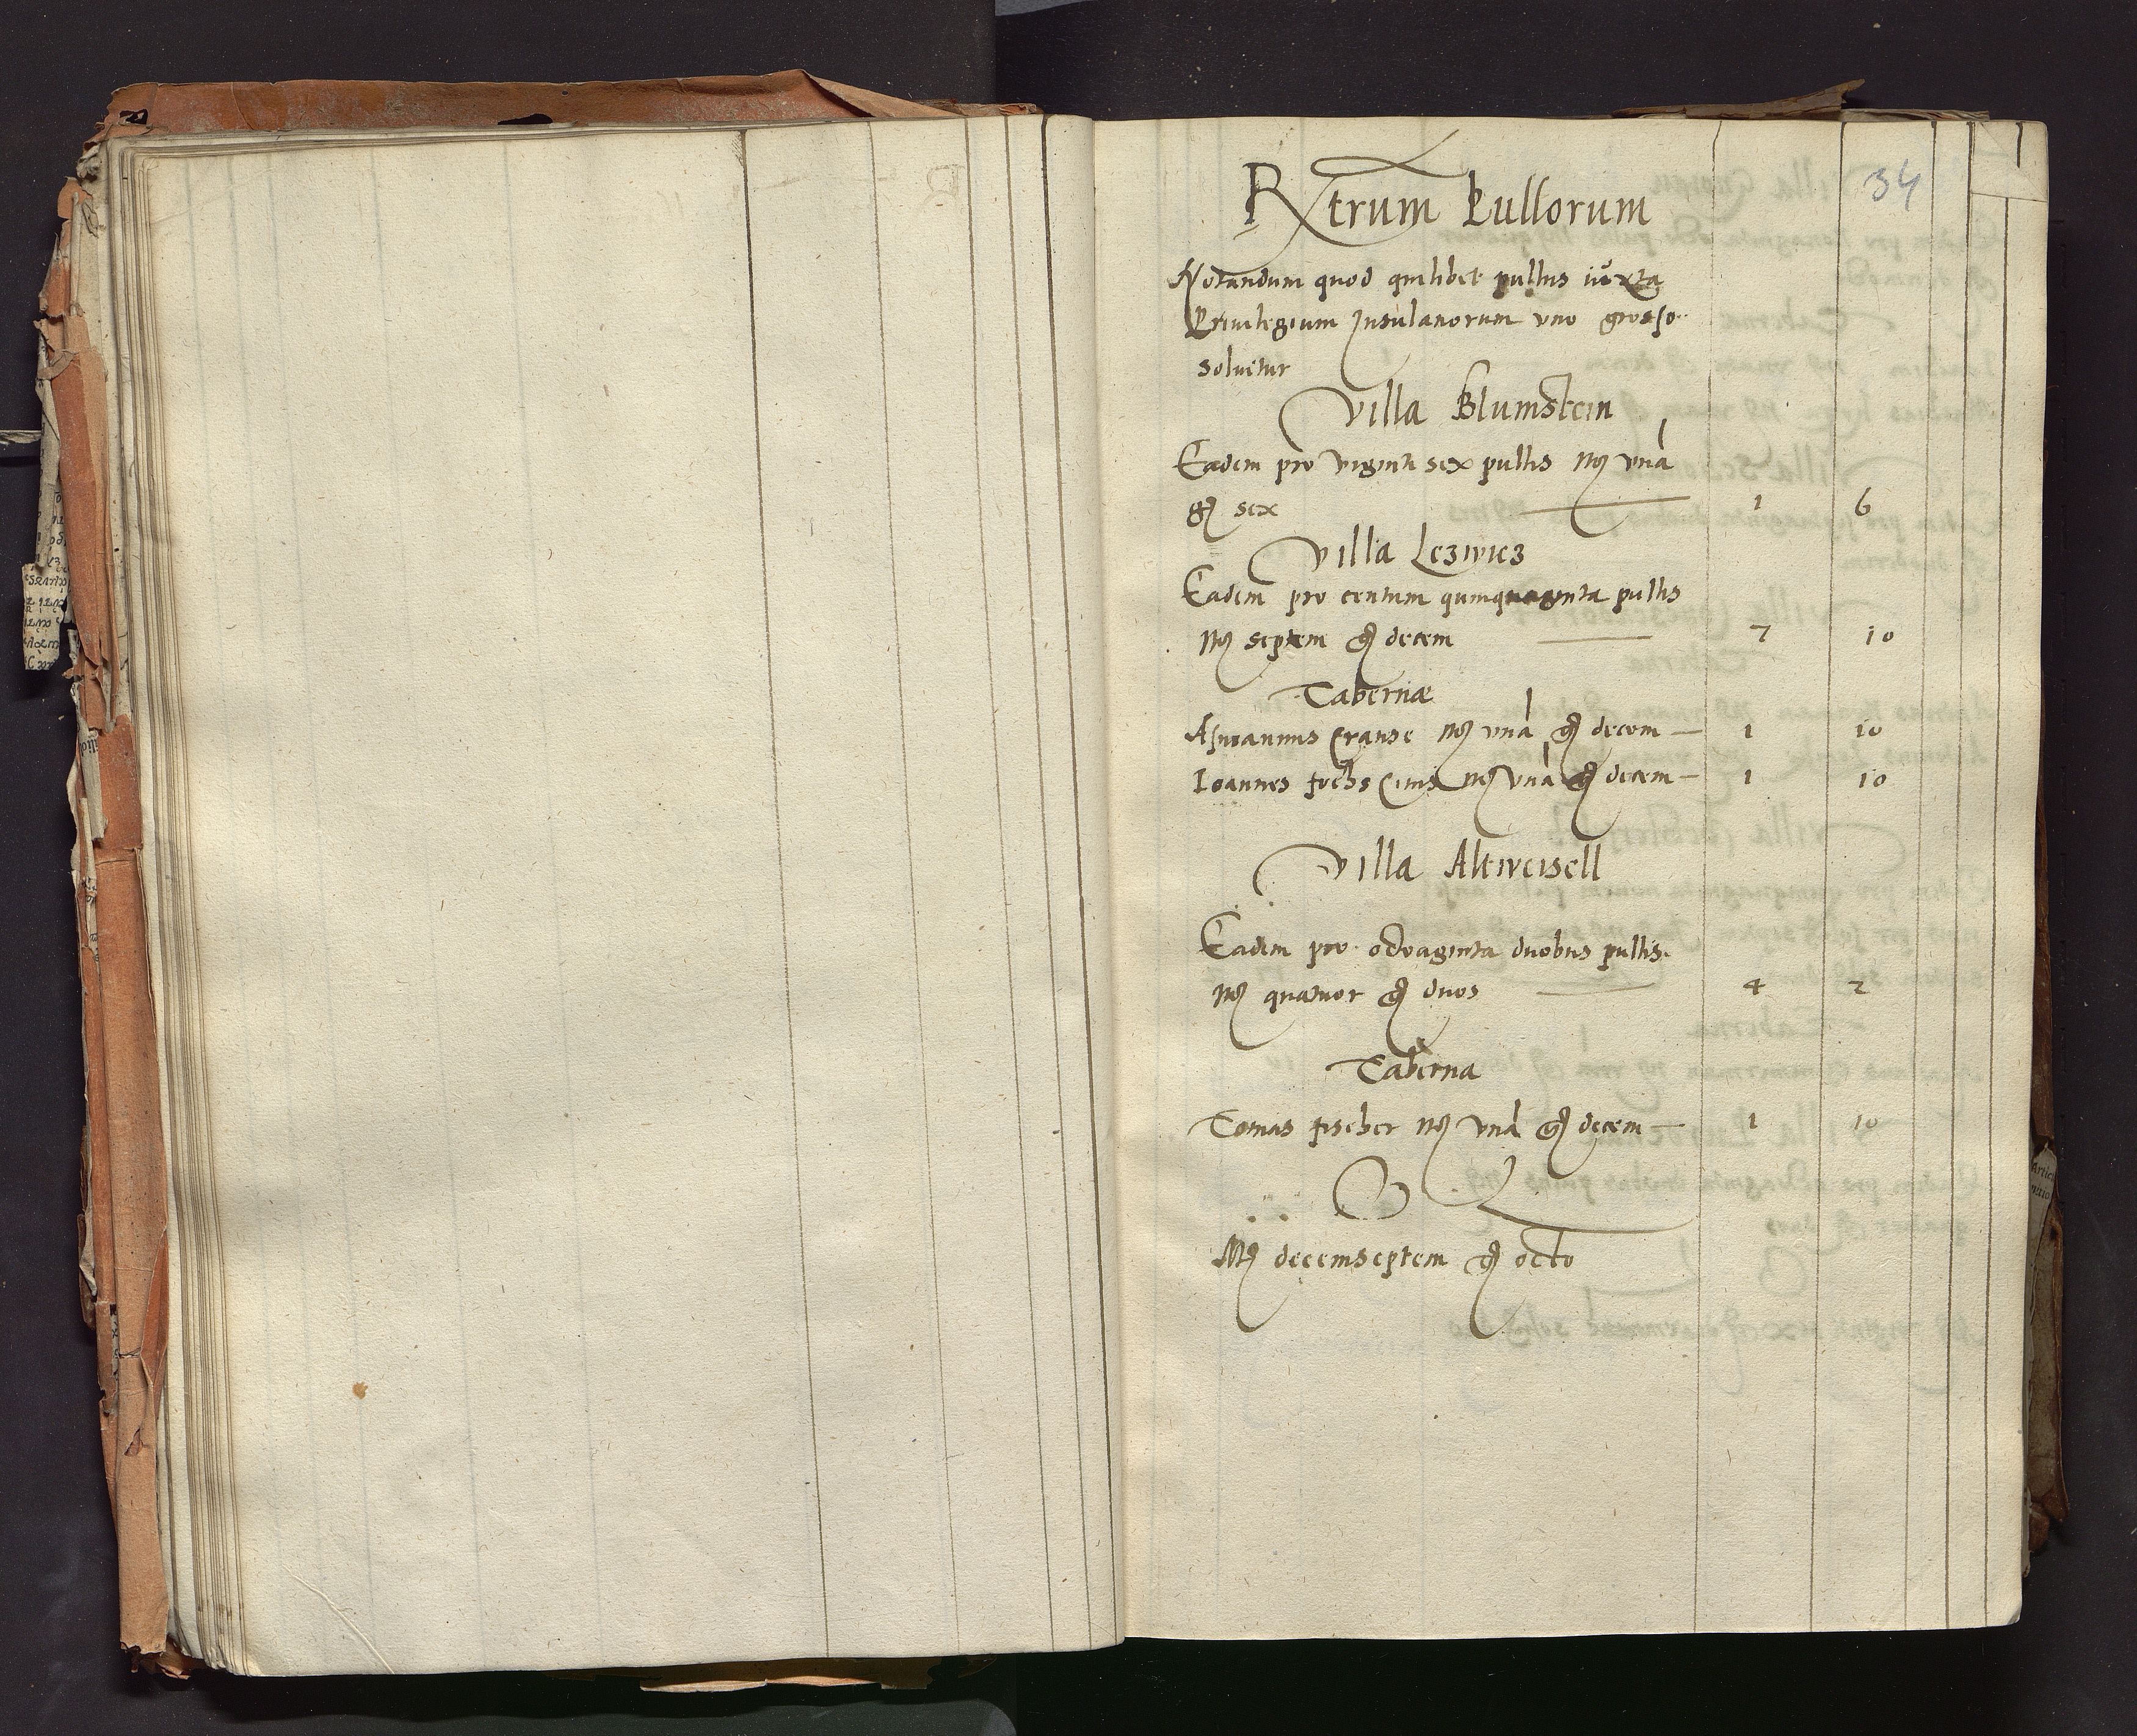 34
Rxtrum Pullorum
Notandum quod quilibet pullus iuxta
Priuilegium Insulanorum vno grosso
soluitur
Villa Blumstein
Eadem pro viginti sex pullis mͬ vna
gͬ sex 1 6
Villa Leszwicz
Eadem pro centum quinquaginta pullis
mͬ septem gͬ decem 7 10
Tabernæ
Asmannus Cranse mͬ vna gͬ decem 1 10
Ioannes mͬ vna gͬ decem 1 10
Villa Altweisell
Eadem pro octoaginta duobus pullis
mͬ quatuor gͬ duos 4 2
Taberna
Tomas fischer mͬ vna gͬ decem 1 10
Mͬ decemseptem gͬ octo